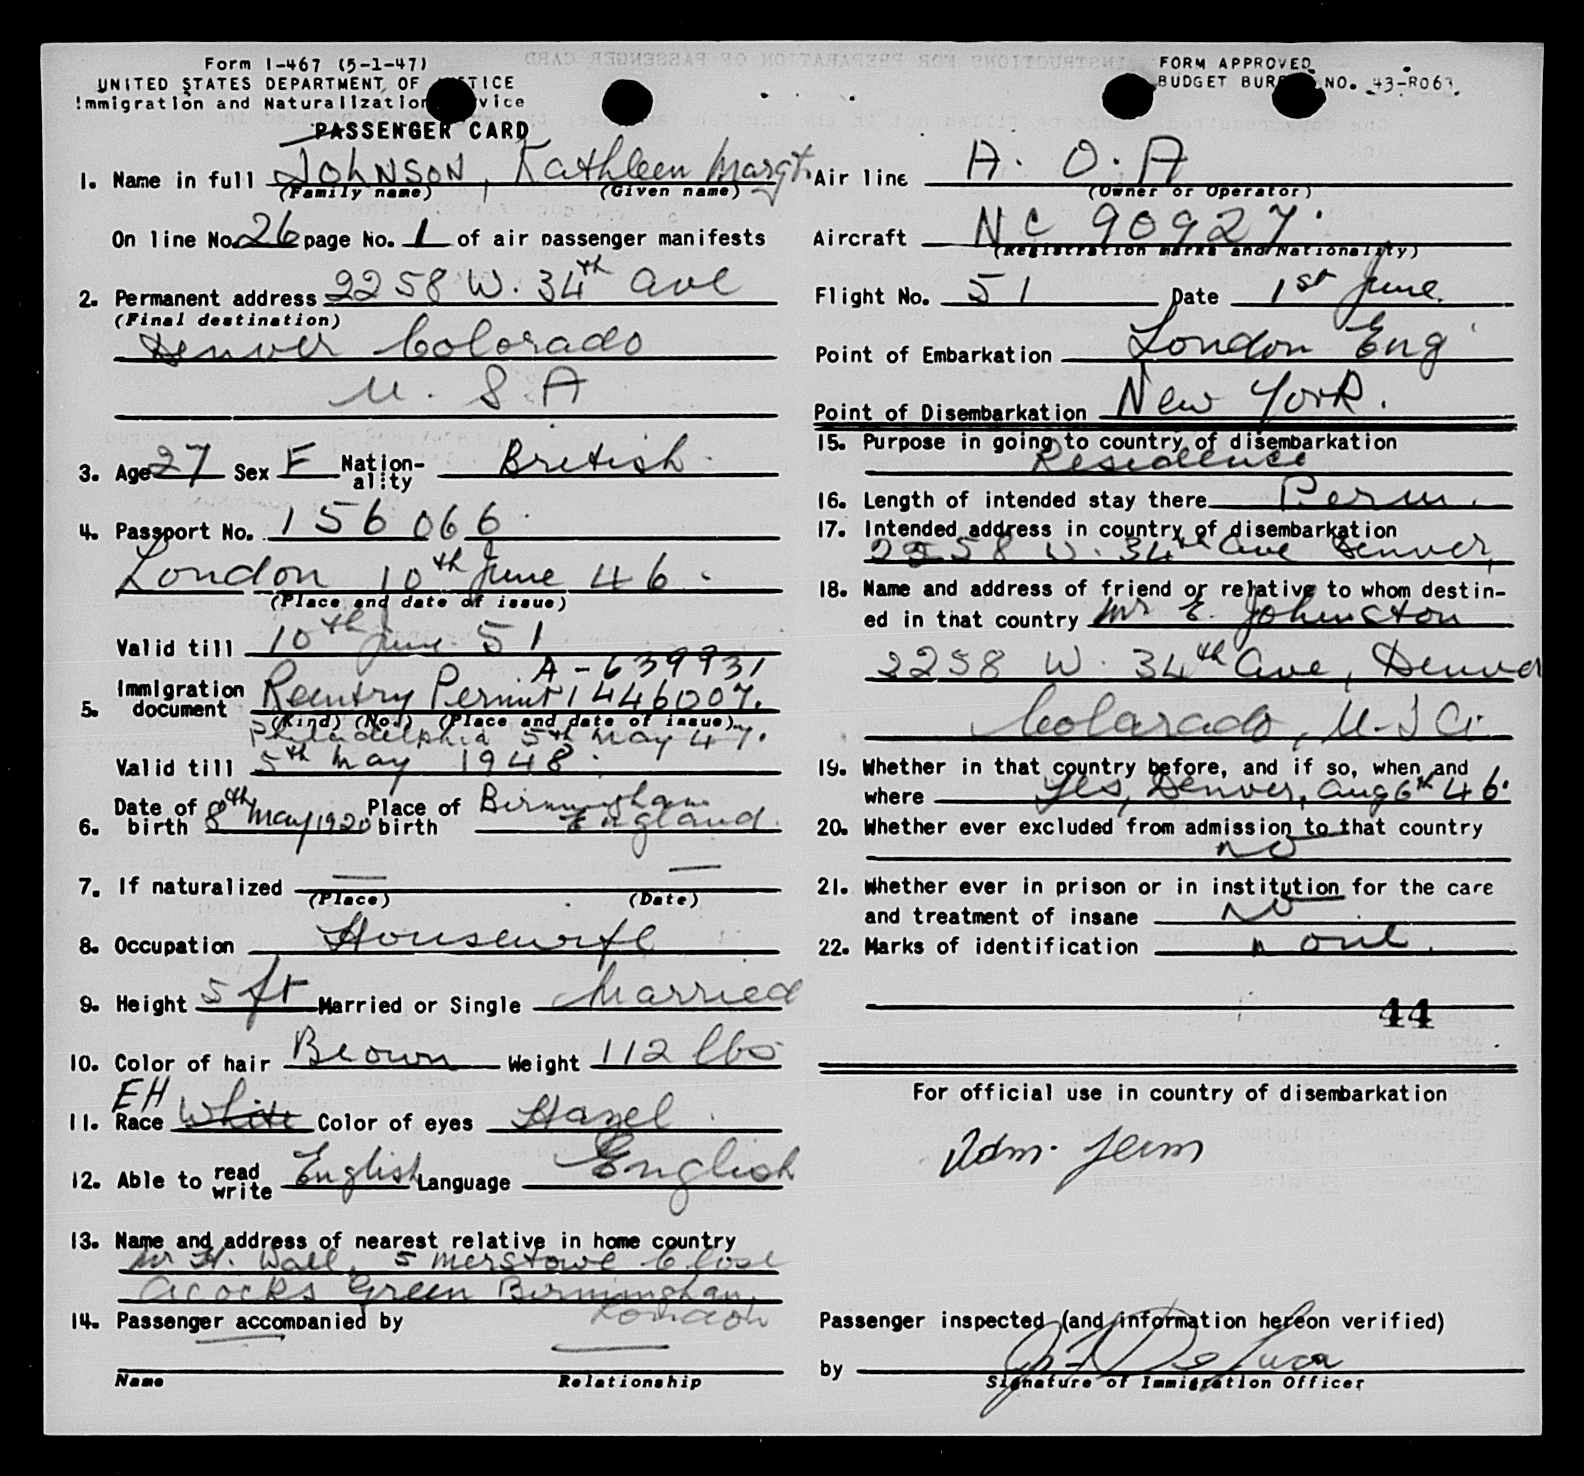 Form I-467 (5-1-47)
UNITED STATES DEPARTMENT OF JUSTICE
Immigration and Naturalization Service
PASSENGER CARD
FORM APPROVED
BUDGET BUREAU NO. 43-R063.
1. Name in full JOHNSON, Kathleen Margt.
(Family name) (Given name)
On line No. 26 page No. 1 of air passenger manifests
2. Permanent address 2258 W. 34th Ave
(Final destination)
Denver Colorado
U. S. A
3. Age 27 Sex F Nation-ality British
4. Passport No. 156066
London 10th June 46.
(Place and date of issue)
Valid till 10th June 51
A-639931
5. Immigration document Reentry Permit 1446007.
(Kind) (No.) (Place and date of issue)
Philadelphia 5th May 47.
Valid till 5th May 1948.
6. Date of birth 8th May 1920 Place of birth Birmingham England.
7. If naturalized — —
(Place) (Date)
8. Occupation Housewife
9. Height 5 ft Married or Single Married
10. Color of hair Brown Weight 112 lbs
EH
11. Race White Color of eyes Hazel
12. Able to read write English Language English
13. Name and address of nearest relative in home country
Mr H. Wall, 5 Merstowe Close
Acocks Green Birmingham.
14. Passenger accompanied by
Name Relationship
Air line A. O. A
(Owner or Operator)
Aircraft NC 90927.
(Registration marks and Nationality)
Flight No. 51 Date 1st June.
Point of Embarkation London Eng
Point of Disembarkation New York.
15. Purpose in going to country of disembarkation
Residence
16. Length of intended stay there Perm.
17. Intended address in country of disembarkation
2258 W. 34th Ave Denver,
18. Name and address of friend or relative to whom destin-
ed in that country Mr E. Johnston
2258 W. 34th Ave, Denver
Colarado, U.S A.
19. Whether in that country before, and if so, when and
where Yes, Denver, Aug 6th 46.
20. Whether ever excluded from admission to that country
NO
21. Whether ever in prison or in institution for the care
and treatment of insane NO
22. Marks of identification none.
44
For official use in country of disembarkation
Adm. Perm
Passenger inspected (and information hereon verified)
by De Luca
Signature of Immigration Officer